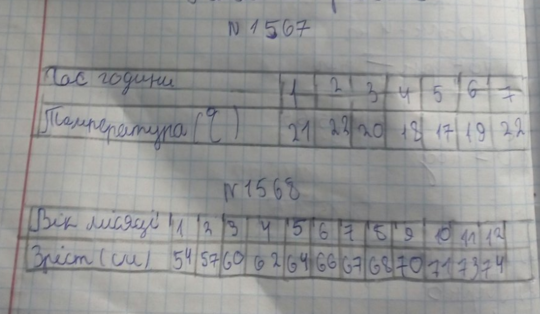 N 1567
Час години 1 2 3 4 5 6 7
Температура (°) 21 22 20 18 17 19 22
N 1568
Вік місяці 1 2 3 4 5 6 7 8 9 10 11 12
Зріст (см) 54 57 60 62 64 66 67 68 70 71 73 74